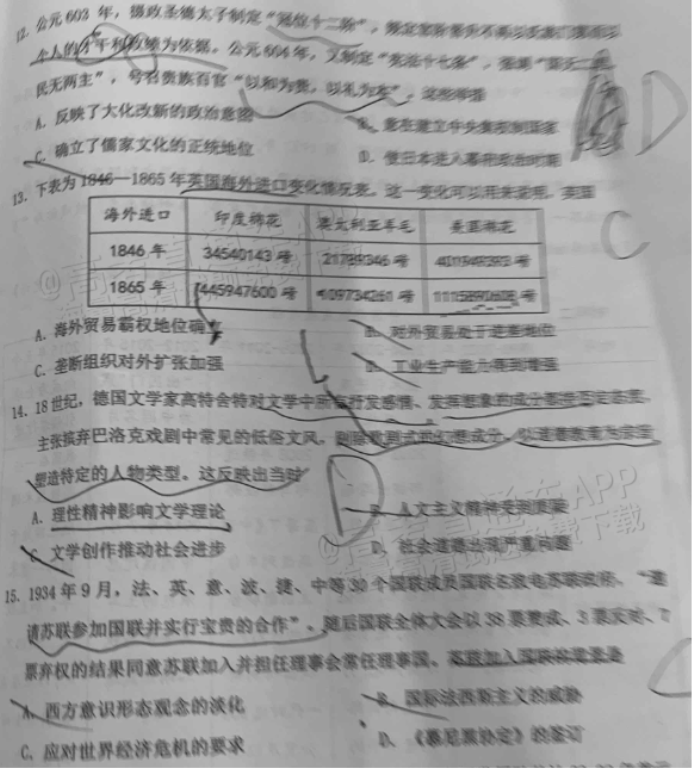 12. 公元 603 年，摄政圣德太子制定“冠位十二阶”，规定
个人的才干和政绩为依据。公元604年，又制定“宪法十七条”，强调“国无二君，
民无两主”，号召贵族百官“以和为贵，以礼为本”。这些举措
A. 反映了大化改新的政治意图
B. 意在建立中央集权制国家
C. 确立了儒家文化的正统地位
D. 使日本进入幕府统治时期
13. 下表为 1846—1865 年英国海外进口变化情况表。这一变化可以用来说明，英国
海外进口 印度棉花 澳大利亚羊毛 美国棉花
1846 年 34540143 磅 21789346 磅
1865 年 445947600 磅 109734261 磅
A. 海外贸易霸权地位确立
B. 对外贸易处于逆差地位
C. 垄断组织对外扩张加强
D. 工业生产能力得到增强
14. 18 世纪，德国文学家高特舍特对文学中所有抒发感情、发挥想象的成分都持否定态度，
主张摈弃巴洛克戏剧中常见的低俗文风，剔除歌剧式的幻想成分，以道德教育为宗旨
塑造特定的人物类型。这反映出当时
A. 理性精神影响文学理论
B. 人文主义精神受到质疑
C. 文学创作推动社会进步
D. 社会道德出现严重问题
15. 1934 年 9 月，法、英、意、波、捷、中等 30 个国联成员国联名致电苏联政府，“邀
请苏联参加国联并实行宝贵的合作”。随后国联全体大会以 38 票赞成、3 票反对、7
票弃权的结果同意苏联加入并担任理事会常任理事国。苏联加入国联的背景是
A. 西方意识形态观念的淡化
B. 国际法西斯主义的威胁
C. 应对世界经济危机的要求
D. 《慕尼黑协定》的签订
D
C